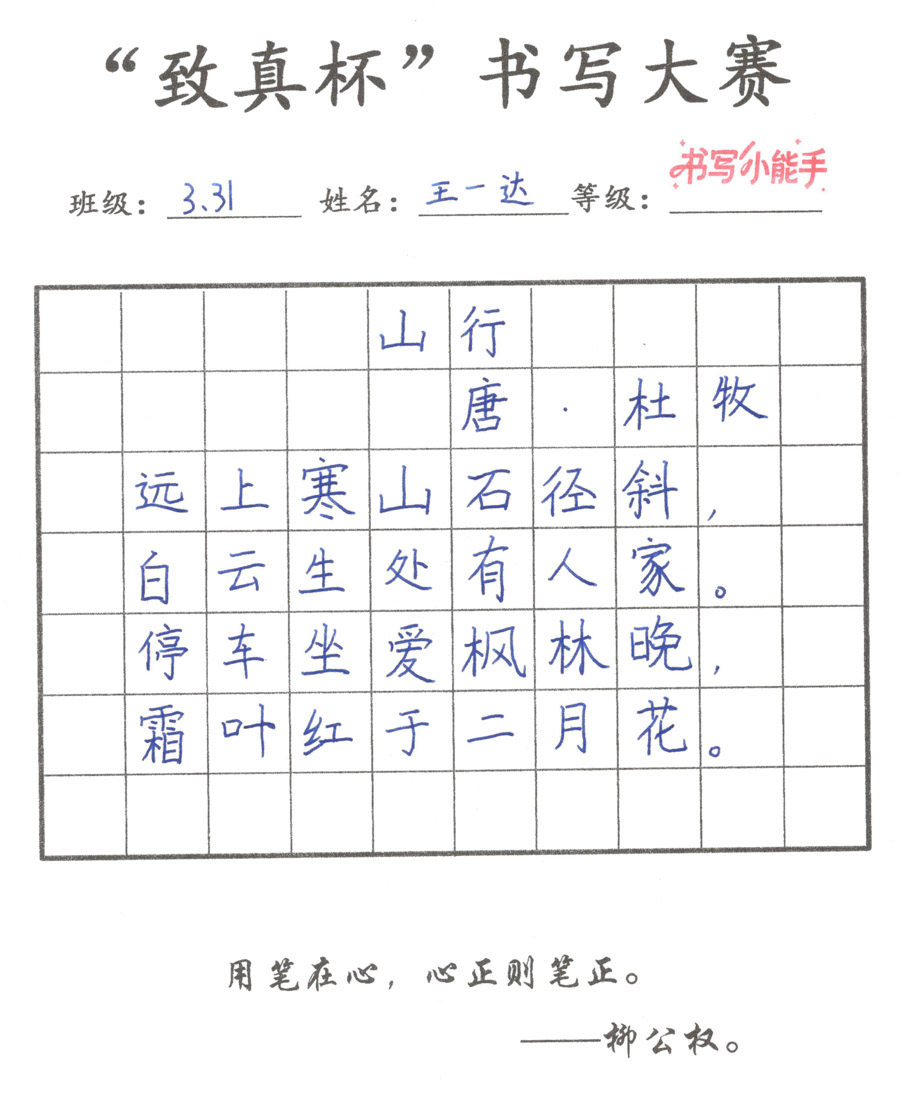 “致真杯”书写大赛
班级：3.31 姓名：王一达 等级：书写小能手
山行
唐·杜牧
远上寒山石径斜，
白云生处有人家。
停车坐爱枫林晚，
霜叶红于二月花。
用笔在心，心正则笔正。
——柳公权。